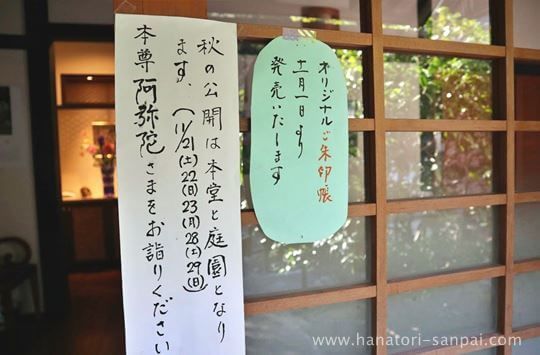 秋の公開は本堂と庭園となり
ます、(11/21(土)22(日)23(月)28(土)29(日))
本尊阿弥陀さまをお詣りください
オリジナルご朱印帳
十一月一日より
発売いたします
www.hanatori-sanpai.com